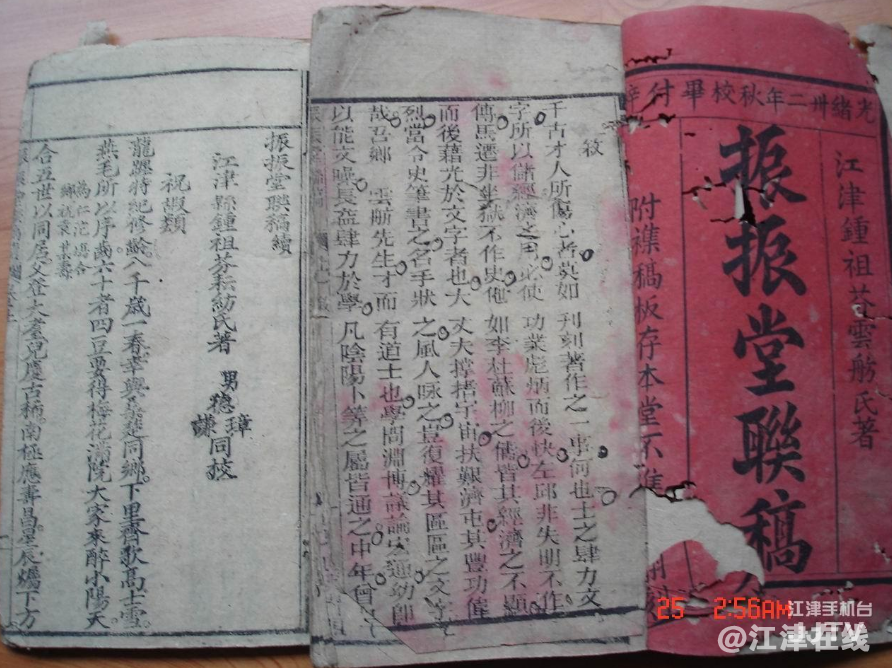 光緒卅二年秋校畢付梓
江津鍾祖芬雲舫氏著
振振堂聯稿
附襍稿板存本堂不准
敘
千古才人所傷心者莫如刊刻著作之一事何也士之肆力文
字所以儲經濟之用必使功業彪炳而後快左邱非失明不作
傳馬遷非坐獄不作史他如李杜蘇柳之儔皆其經濟之不顯
而後藉光於文字者也大丈夫撐拄宇宙扶艱濟屯其豐功偉
烈當令史筆書之名手狀之風人咏之豈復耀其區區之文字
哉吾鄉 雲舫先生才而有道士也學問淵博議論宏通幼即
以能文噪長益肆力於學凡陰陽卜筭之屬皆通之中年何
振振堂聯稿續
江津縣鍾祖芬耘舫氏著 男 璋 謙 同校
祝嘏類
龍躔特紀修齡八千歲一春幸與桑楚同鄉下里齊歌高士雪
燕毛所以序歲六十者四豆要得梅花滿院大家來醉小陽天
爲仁沱場合
鄉祝某壽
合五世以同居父登大耋兒慶古稀南極應壽昌星辰燭下方
25 2:56AM
江津手机台
JJTV
@江津在线